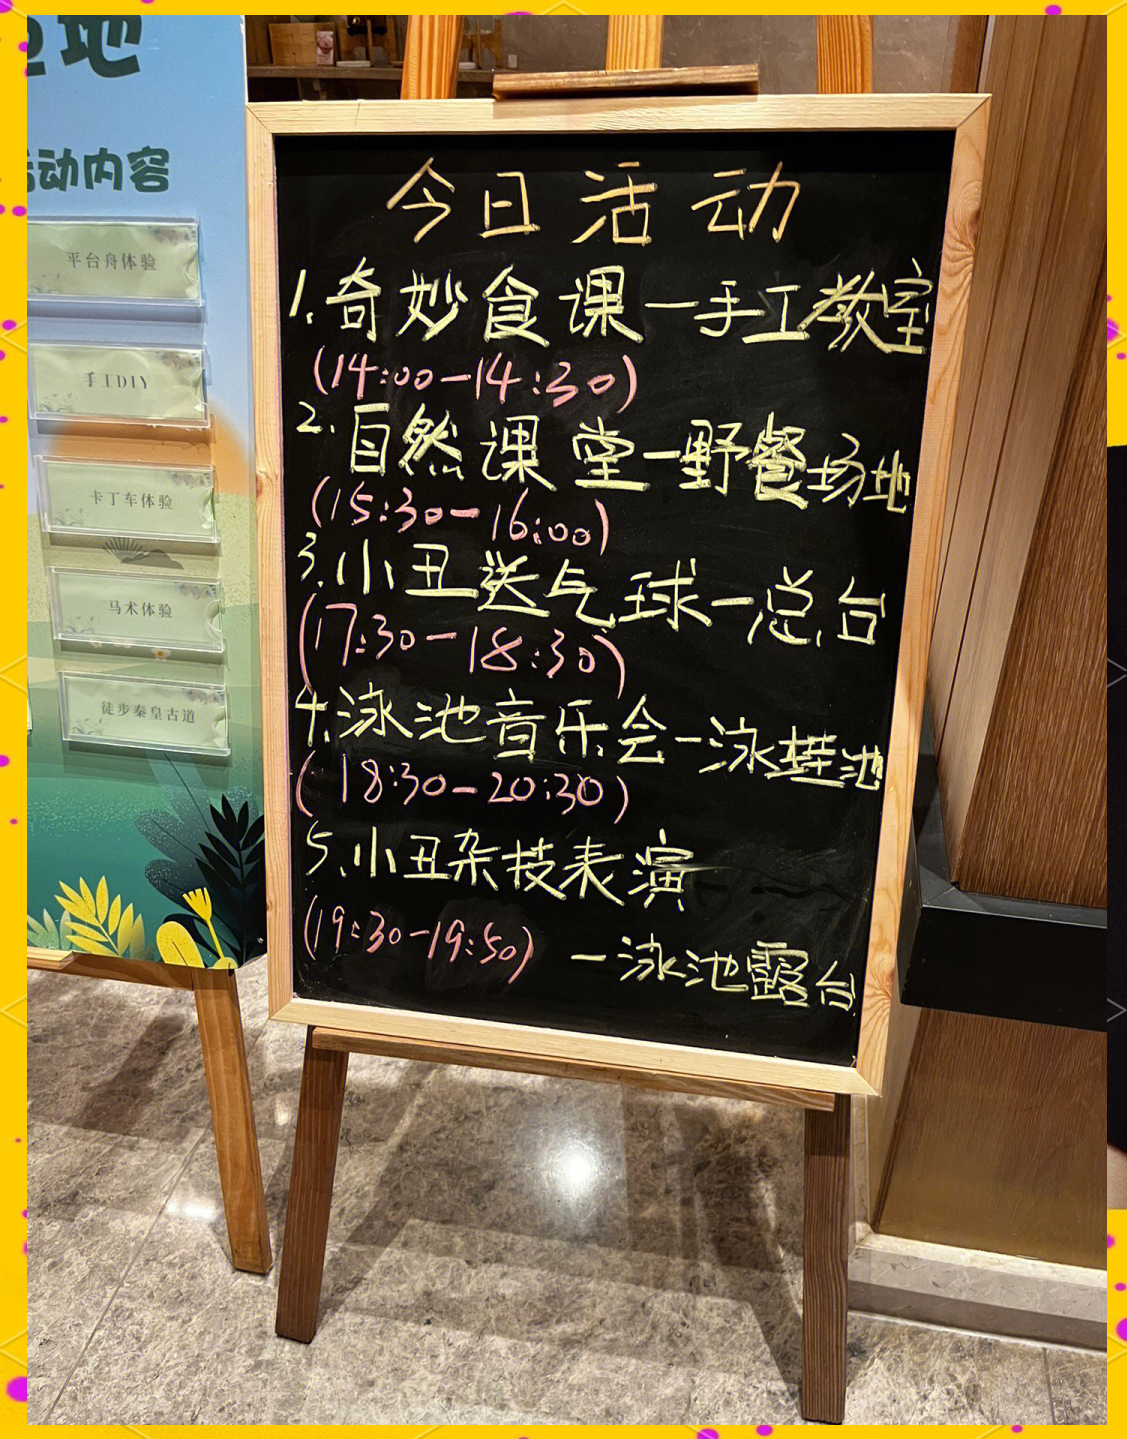 地
动内容
平台舟体验
手工DIY
卡丁车体验
马术体验
徒步秦皇古道
今日活动
1.奇妙食课—手工教室
(14:00—14:30)
2.自然课堂—野餐场地
(15:30—16:00)
3.小丑送气球—总台
(17:30—18:30)
4.泳池音乐会—泳池
(18:30—20:30)
5.小丑杂技表演
(19:30—19:50) —泳池露台